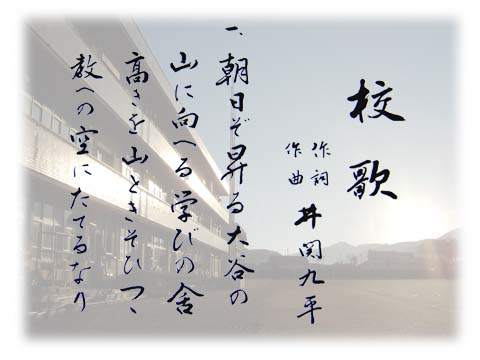 校歌
作詞
作曲
井関九平
一、朝日ぞ昇る大谷の
山に向へる学びの舎
高きを山ときそひつゝ
教への空にたてるなり